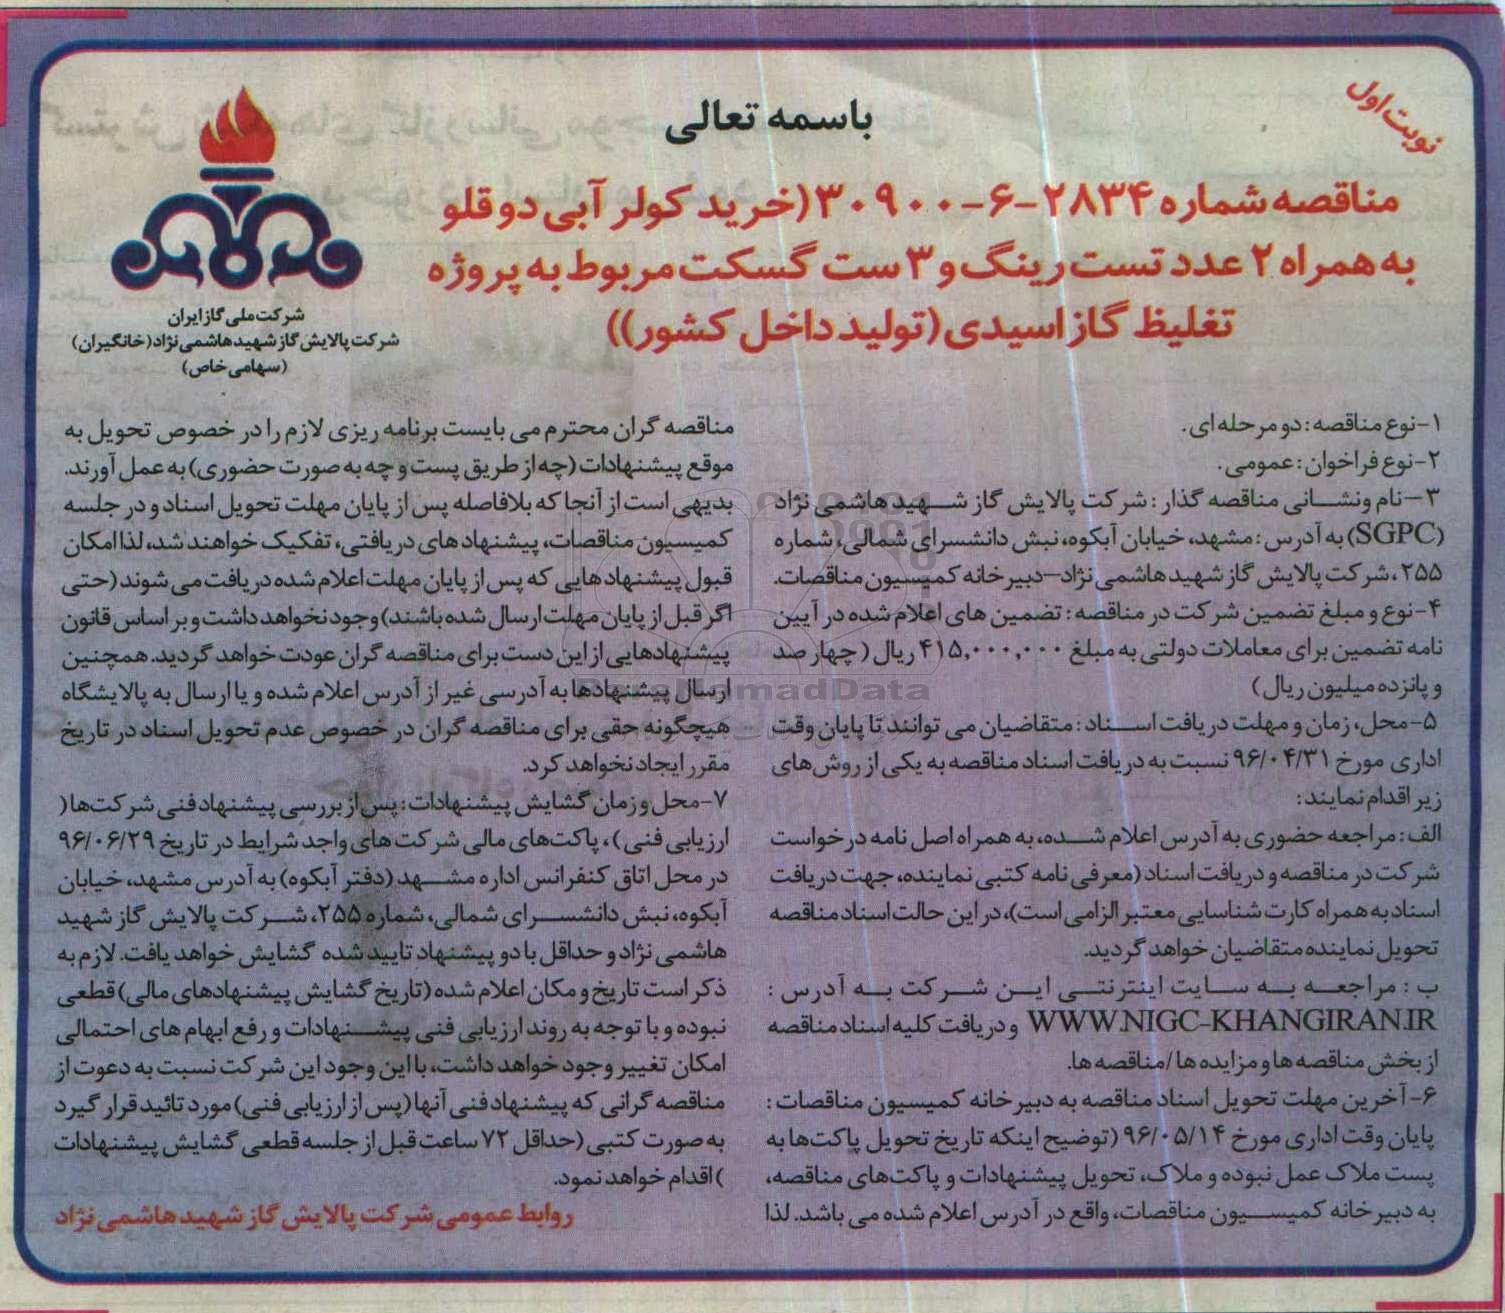 نوبت اول
باسمه تعالی
مناقصه شماره ۲۸۳۴-۶-۳۰۹۰۰ (خرید کولر آبی دوقلو
به همراه ۲ عدد تست رینگ و ۳ ست گسکت مربوط به پروژه
تغلیظ گاز اسیدی (تولید داخل کشور))
شرکت ملی گاز ایران
شرکت پالایش گاز شهید هاشمی نژاد (خانگیران)
(سهامی خاص)
۱-نوع مناقصه: دو مرحله ای.
۲-نوع فراخوان: عمومی.
۳-نام ونشانی مناقصه گذار: شرکت پالایش گاز شهید هاشمی نژاد
(SGPC) به آدرس: مشهد، خیابان آبکوه، نبش دانشسرای شمالی، شماره
۲۵۵، شرکت پالایش گاز شهید هاشمی نژاد-دبیرخانه کمیسیون مناقصات.
۴-نوع و مبلغ تضمین شرکت در مناقصه: تضمین های اعلام شده در آیین
نامه تضمین برای معاملات دولتی به مبلغ ۴۱۵,۰۰۰,۰۰۰ ریال ( چهار صد
و پانزده میلیون ریال)
۵-محل، زمان و مهلت دریافت اسناد: متقاضیان می توانند تا پایان وقت
اداری مورخ ۹۶/۰۴/۳۱ نسبت به دریافت اسناد مناقصه به یکی از روش‌های
زیر اقدام نمایند:
الف: مراجعه حضوری به آدرس اعلام شده، به همراه اصل نامه درخواست
شرکت در مناقصه و دریافت اسناد (معرفی نامه کتبی نماینده، جهت دریافت
اسناد به همراه کارت شناسایی معتبر الزامی است)، در این حالت اسناد مناقصه
تحویل نماینده متقاضیان خواهد گردید.
ب: مراجعه به سایت اینترنتی این شرکت به آدرس:
WWW.NIGC-KHANGIRAN.IR و دریافت کلیه اسناد مناقصه
از بخش مناقصه ها و مزایده ها /مناقصه ها.
۶-آخرین مهلت تحویل اسناد مناقصه به دبیرخانه کمیسیون مناقصات:
پایان وقت اداری مورخ ۹۶/۰۵/۱۴ (توضیح اینکه تاریخ تحویل پاکت‌ها به
پست ملاک عمل نبوده و ملاک، تحویل پیشنهادات و پاکت‌های مناقصه،
به دبیرخانه کمیسیون مناقصات، واقع در آدرس اعلام شده می باشد. لذا
مناقصه گران محترم می بایست برنامه ریزی لازم را در خصوص تحویل به
موقع پیشنهادات (چه از طریق پست و چه به صورت حضوری) به عمل آورند.
بدیهی است از آنجا که بلافاصله پس از پایان مهلت تحویل اسناد و در جلسه
کمیسیون مناقصات، پیشنهادهای دریافتی، تفکیک خواهند شد، لذا امکان
قبول پیشنهادهایی که پس از پایان مهلت اعلام شده دریافت می شوند (حتی
اگر قبل از پایان مهلت ارسال شده باشند) وجود نخواهد داشت و بر اساس قانون
پیشنهادهایی از این دست برای مناقصه گران عودت خواهد گردید. همچنین
ارسال پیشنهادها به آدرسی غیر از آدرس اعلام شده و یا ارسال به پالایشگاه
هیچگونه حقی برای مناقصه گران در خصوص عدم تحویل اسناد در تاریخ
مقرر ایجاد نخواهد کرد.
۷-محل و زمان گشایش پیشنهادات: پس از بررسی پیشنهاد فنی شرکت‌ها (
ارزیابی فنی)، پاکت‌های مالی شرکت های واجد شرایط در تاریخ ۹۶/۰۶/۲۹
در محل اتاق کنفرانس اداره مشهد (دفتر آبکوه) به آدرس مشهد، خیابان
آبکوه، نبش دانشسرای شمالی، شماره ۲۵۵، شرکت پالایش گاز شهید
هاشمی نژاد و حداقل با دو پیشنهاد تایید شده گشایش خواهد یافت. لازم به
ذکر است تاریخ و مکان اعلام شده (تاریخ گشایش پیشنهادهای مالی) قطعی
نبوده و با توجه به روند ارزیابی فنی پیشنهادات و رفع ابهام های احتمالی
امکان تغییر وجود خواهد داشت، با این وجود این شرکت نسبت به دعوت از
مناقصه گرانی که پیشنهاد فنی آنها (پس از ارزیابی فنی) مورد تائید قرار گیرد
به صورت کتبی (حداقل ۷۲ ساعت قبل از جلسه قطعی گشایش پیشنهادات
) اقدام خواهد نمود.
روابط عمومی شرکت پالایش گاز شهید هاشمی نژاد